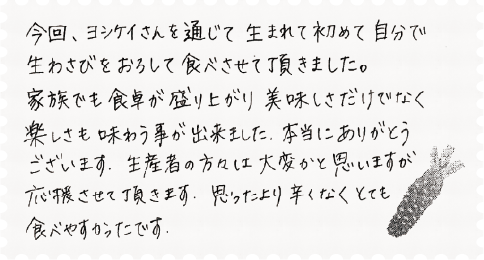 今回、ヨシケイさんを通じて生まれて初めて自分で
生わさびをおろして食べさせて頂きました。
家族でも食卓が盛り上がり美味しさだけでなく
楽しさも味わう事が出来ました. 本当にありがとう
ございます. 生産者の方々は大変かと思いますが
応援させて頂きます. 思ったより辛くなくとても
食べやすかったです.